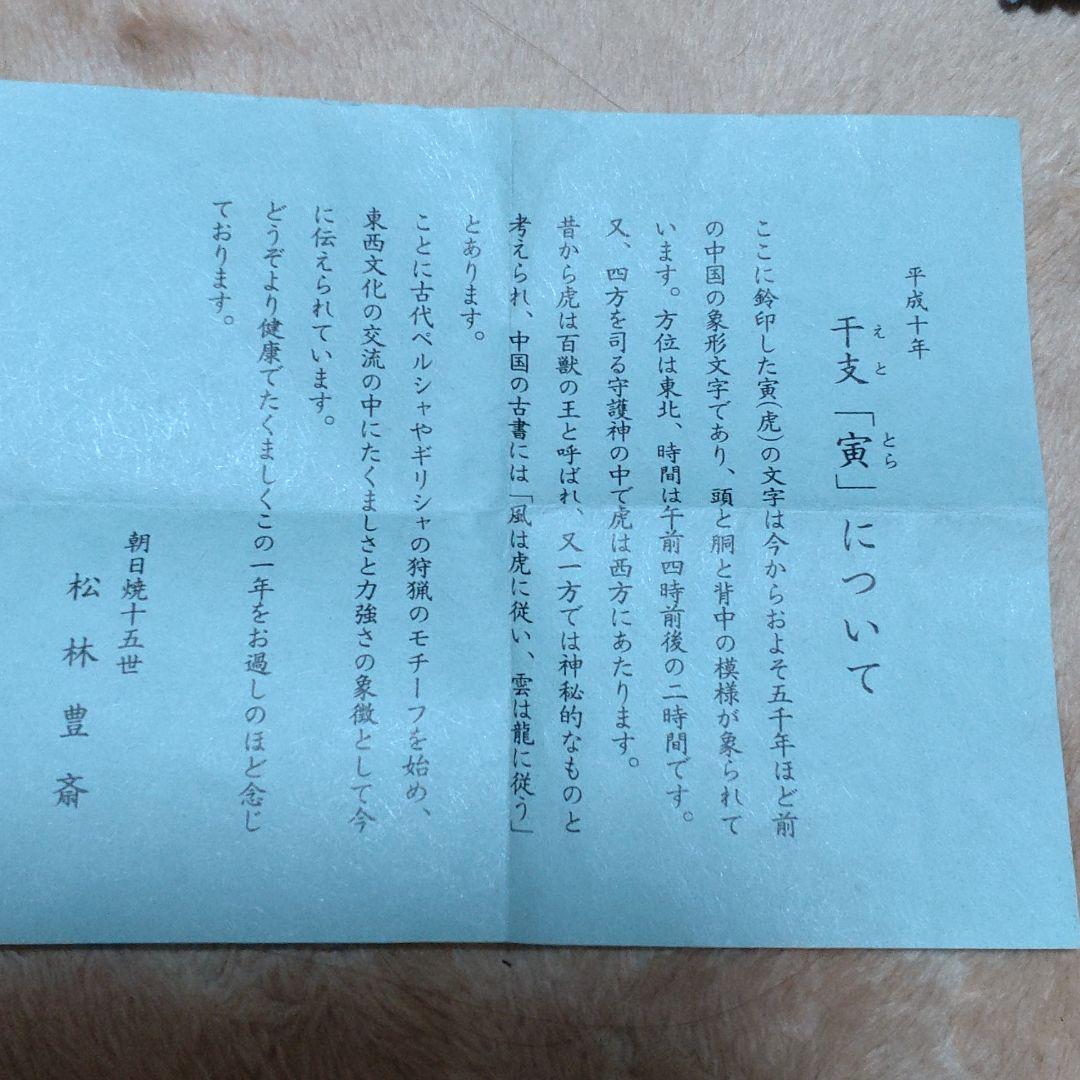 平成十年
干支「寅」について
えと
とら
ここに鈴印した寅(虎)の文字は今からおよそ五千年ほど前
の中国の象形文字であり、頭と胴と背中の模様が象られて
います。方位は東北、時間は午前四時前後の二時間です。
又、四方を司る守護神の中で虎は西方にあたります。
昔から虎は百獣の王と呼ばれ、又一方では神秘的なものと
考えられ、中国の古書には「風は虎に従い、雲は龍に従う」
とあります。
ことに古代ペルシャやギリシャの狩猟のモチーフを始め、
東西文化の交流の中にたくましさと力強さの象徴として今
に伝えられています。
どうぞより健康でたくましくこの一年をお過しのほど念じ
ております。
朝日焼十五世
松林豊斎